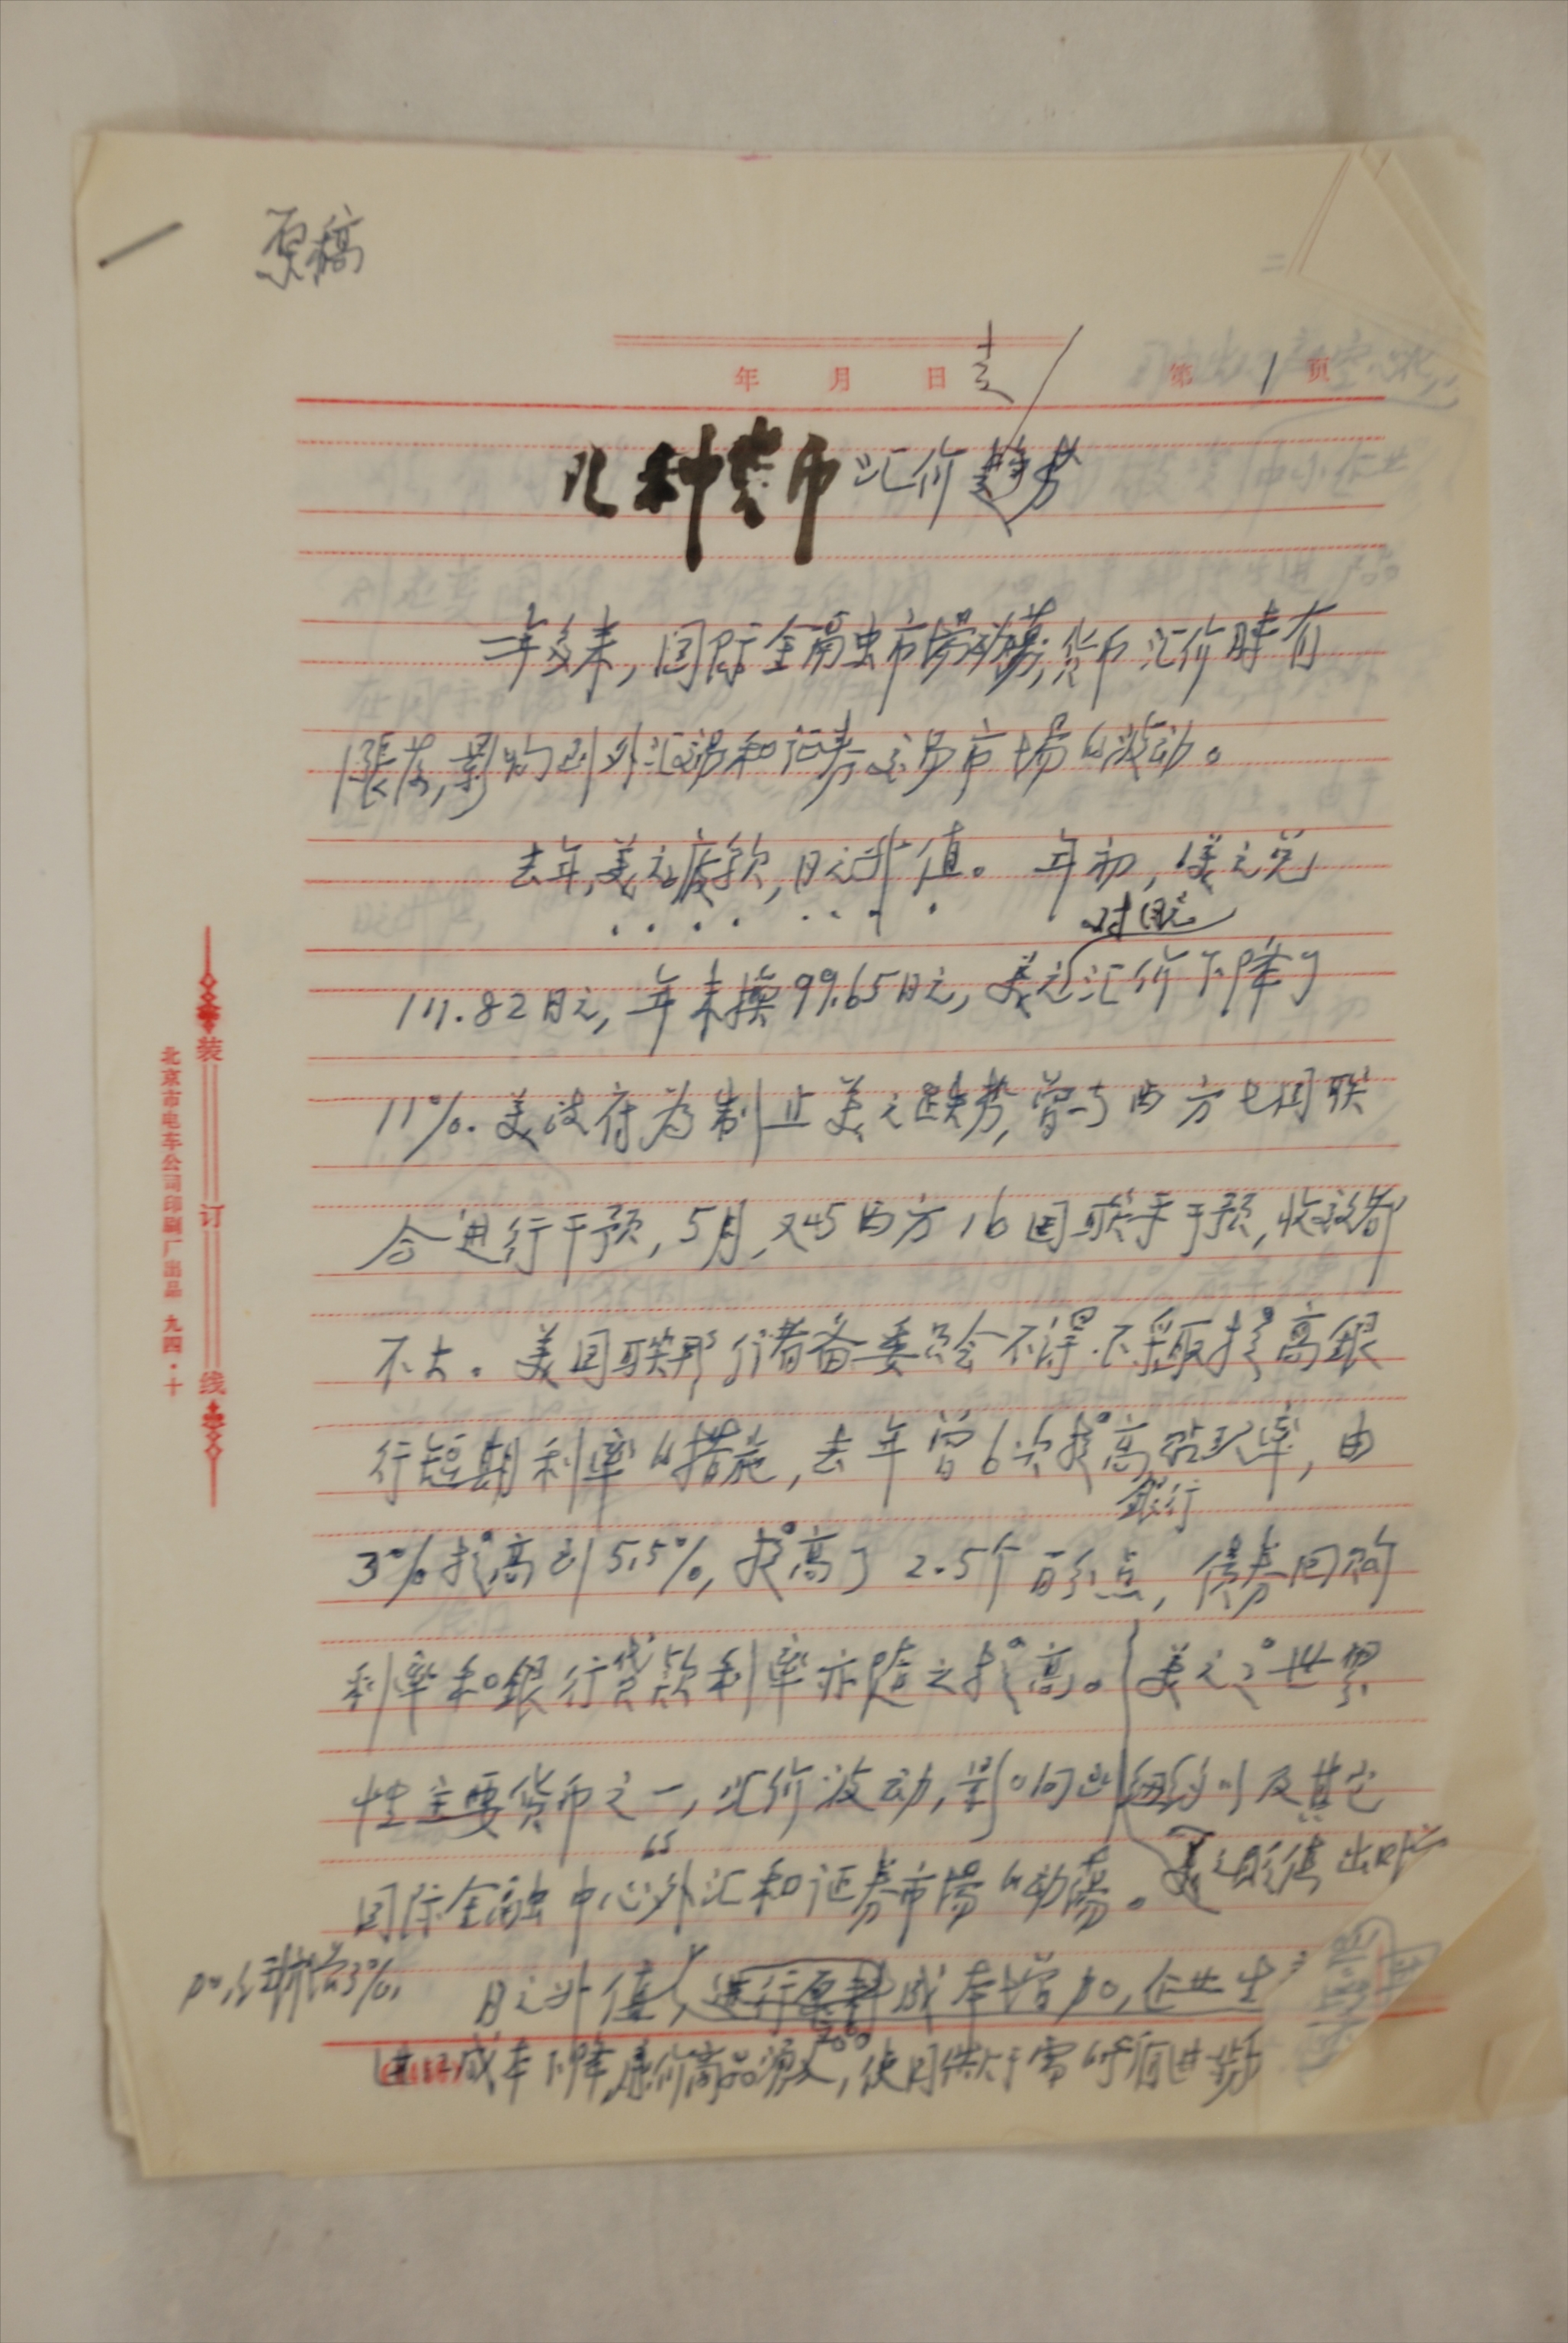 原稿
年 月 日
第 1 页
几种货币汇价趋势
一年多来，国际金融市场动荡，货币汇价时有
涨落，影响到外汇交易和证券交易市场的波动。
去年，美元疲软，日元升值。年初，1美元兑
对日元
111.82日元，年末换99.65日元，美元汇价下降了
11%。美政府为制止美元跌势，曾与西方七国联
合进行干预，5月，又与西方16国联手干预，收效都
不大。美国联邦储备委员会不得不采取提高银
行短期利率的措施，去年曾6次提高贴现率，由
银行
3%提高到5.5%，提高了2.5个百分点，债券回购
利率和银行贷款利率亦随之提高。美元是世界
性主要货币之一，汇价波动，影响到纽约以及其它
国际金融中心外汇和证券市场的动荡。美元贬值出口
日元升值，进行原料成本增加，企业生
进口成本下降，廉价商品涌入，使国供大于需的
装订线
北京市电车公司印刷厂出品 九四·十